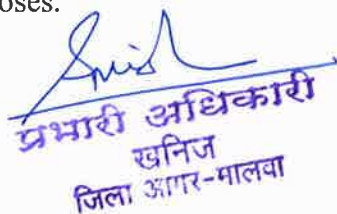 oses.
प्रभारी अधिकारी
खनिज
जिला आगर-मालवा